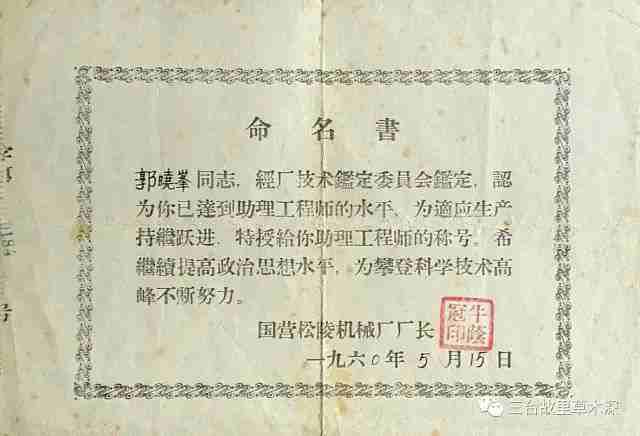 命名書
郭曉峯同志，經厂技术鑑定委員会鑑定，認
为你已達到助理工程师的水平，为適应生产
持繼跃进，特授給你助理工程师的称号。希
繼續提高政治思想水平，为攀登科学技术高
峰不断努力。
国营松陵机械厂厂长
牛蔭冠印
一九六0年5月15日
号
三台故里草木深